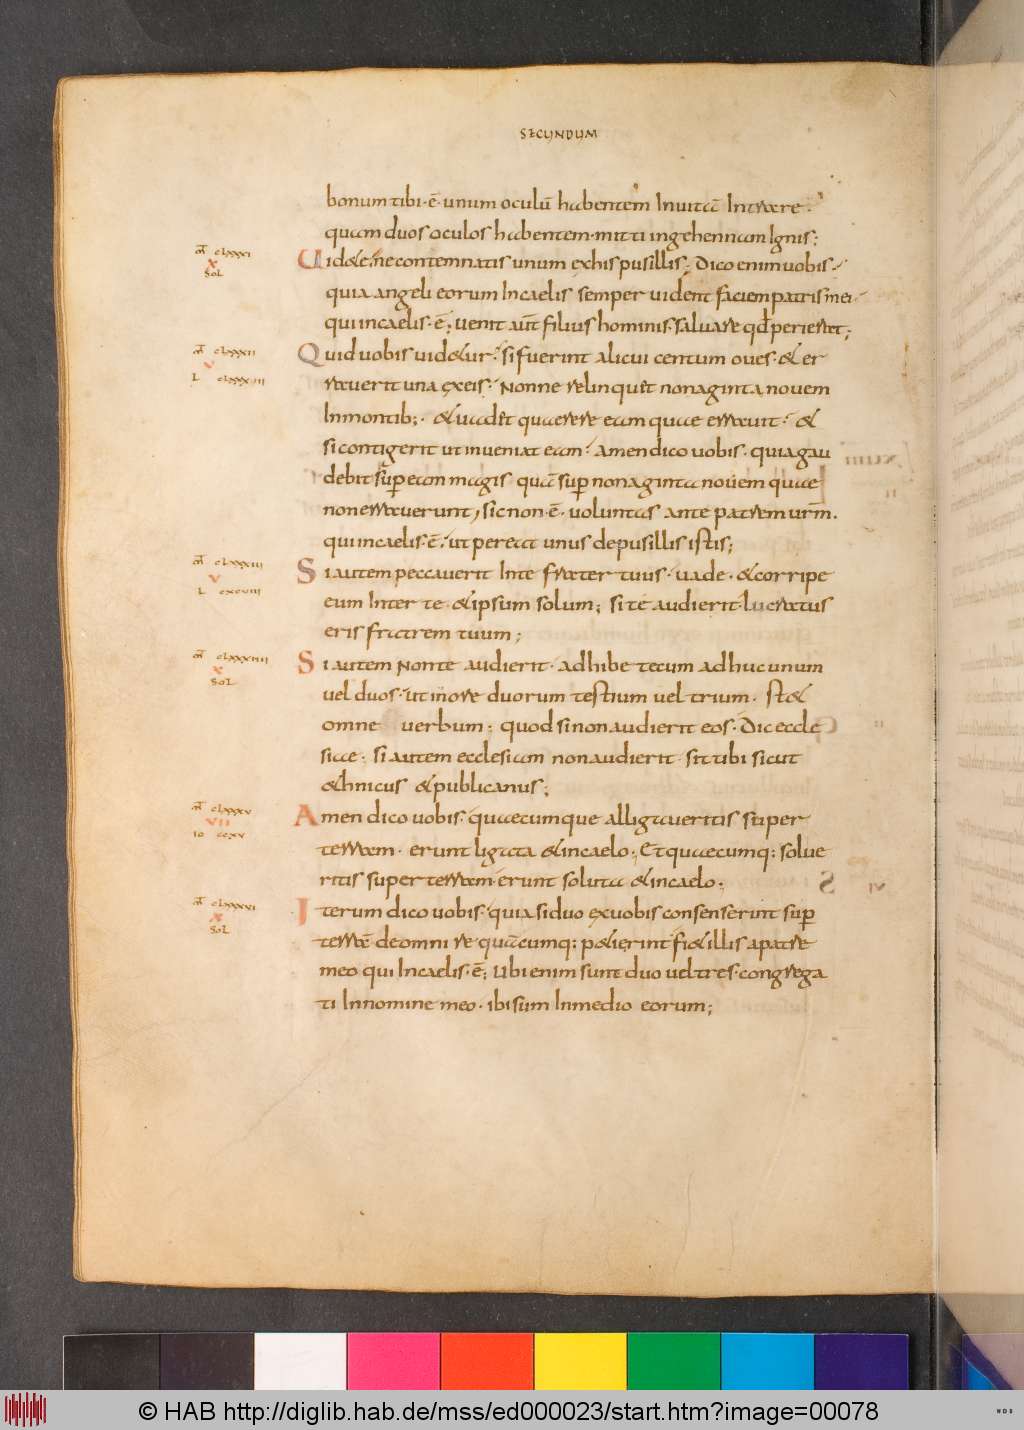 SECUNDUM
bonum tibi · ē · unum oculū habentem Inuitā Intrare ·
quam duos oculos habentem · mitti ingehennam Ignis;
m̄ clxxxi
x
sol
Uid&e; ne contemnatis unum exhis pusillis; Dico enim uobis ·
quia angeli eorum Incaelis semper uident faciem patris mei ·
qui incaelis · ē; uenit aūt filius hominis · saluare qđ perierat;
m̄ clxxxii
v
L clxxxviii
Quid uobis uid&ur · si fuerint alicui centum oues · & er
rauerit una exeis · Nonne relinquet nonaginta nouem
Inmontib; · & uadēt quaerere eam quae errauit · &
si contigerit ut inueniat eam · Amen dico uobis · quia gau
debit sup̄ eam magis quā sup̄ nonaginta nouem quae
non errauerunt, sic non · ē · uoluntas ante patrem urm̄ ·
qui incaelis · ē · ut pereat unus de pusillis istis;
m̄ clxxxiii
v
L cxcviii
Si autem peccauerit Inte frater tuus · uade · & corripe
eum Inter te · & ipsum solum; si te audierit · lucratus
eris fratrem tuum;
m̄ clxxxiiii
x
sol
Si autem Nonte audierit · adhibe tecum adhuc unum
uel duos · ut inore duorum testium uel trium · st&
omne uerbum; quod si non audierit eos · Dic eccle
siae; si autem ecclesiam non audierit · sit tibi sicut
&hnicus & publicanus;
m̄ clxxxv
vii
io ccxv
Amen dico uobis · quaecumque alligaueritis super
terram · erunt ligata & incaelo; Et quaecumq; solue
ritis super terram · erunt soluta & incaelo;
m̄ clxxxvi
x
sol
Iterum dico uobis · quia si duo exuobis consenserint sup̄
terrā de omni re quācumq; p&ierint fi& illis a patre
meo qui Incaelis · ē; Ubi enim sunt duo uel tres · congrega
ti Innomine meo · ibi sum Inmedio eorum;
© HAB http://diglib.hab.de/mss/ed000023/start.htm?image=00078